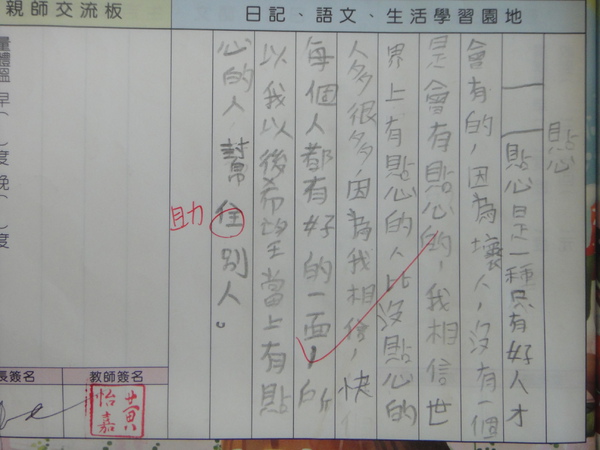 親師交流板
日記、語文、生活學習園地
貼心
貼心是一種只有好人才
會有的，因為壞人，沒有一個
是會有貼心的，我相信世
界上有貼心的人比沒貼心的
人多很多，因為我相信，快
每個人都有好的一面，所
以我以後希望當上有貼
心的人幫住別人。
助
量體溫 早( )度 晚( )度
長簽名
教師簽名
黃怡嘉